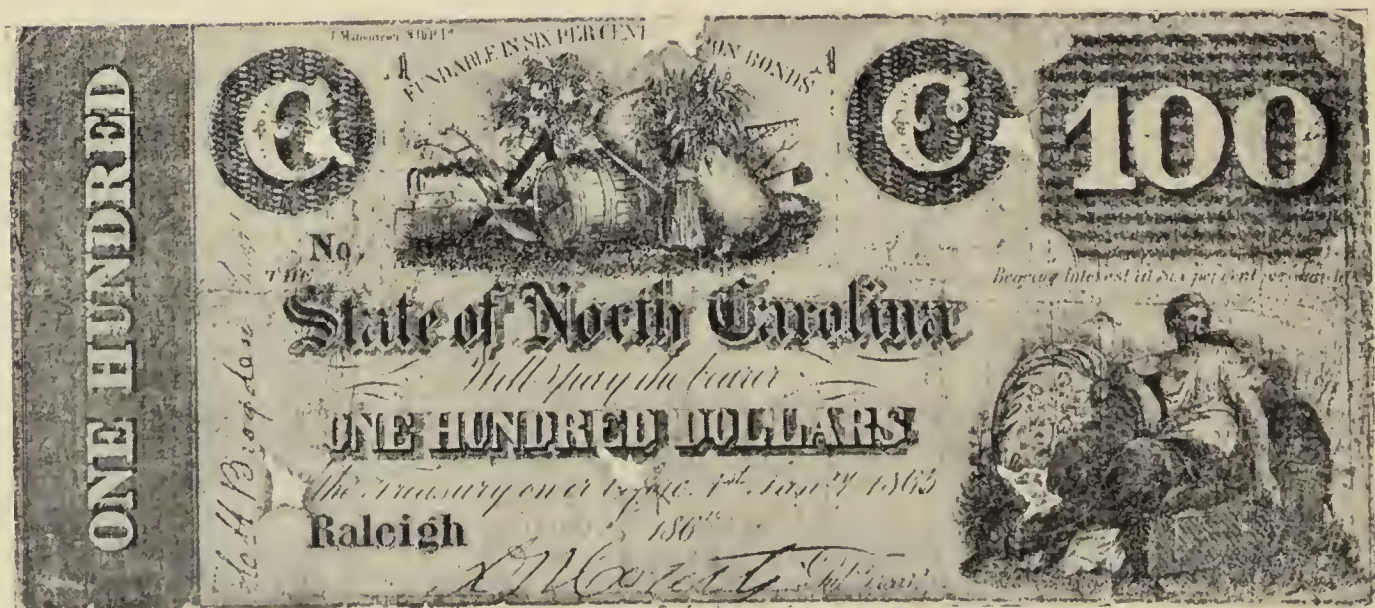 ONE HUNDRED
FUNDABLE IN SIX PER CENT ON BONDS
C
C
100
No.
THE
Bearing Interest at six per cent per
State of North Carolina
Will pay the bearer
ONE HUNDRED DOLLARS
The Treasury on or 1st Jan'y 1863
Raleigh 186